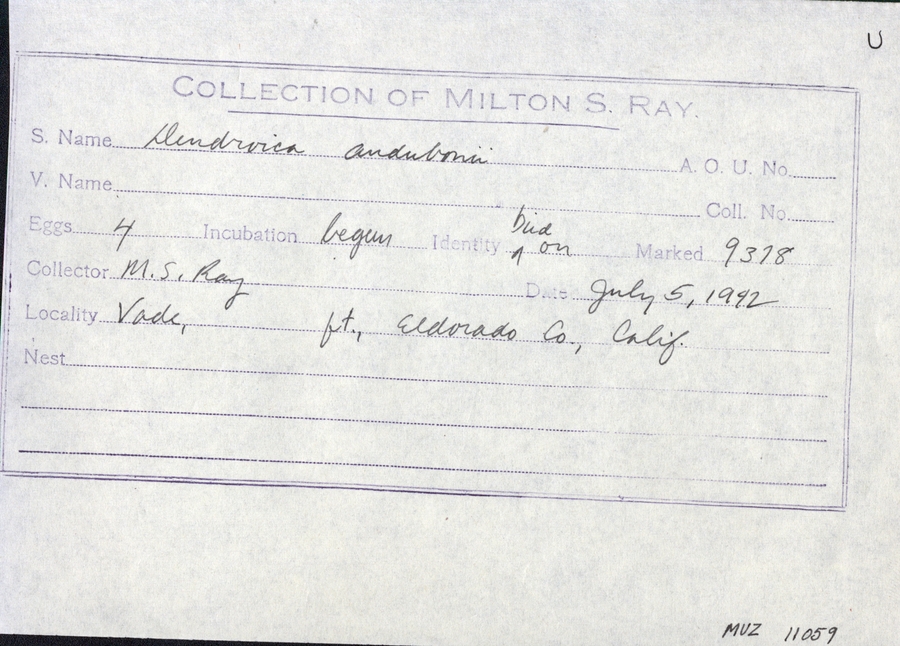 U
COLLECTION OF MILTON S. RAY.
S. Name Dendroica auduboni A. O. U. No.
V. Name Coll. No.
Eggs 4 Incubation begun Identity bird on Marked 9378
Collector M. S. Ray Date July 5, 1942
Locality Vade, ft., Eldorado Co., Calif.
Nest
MVZ 11059